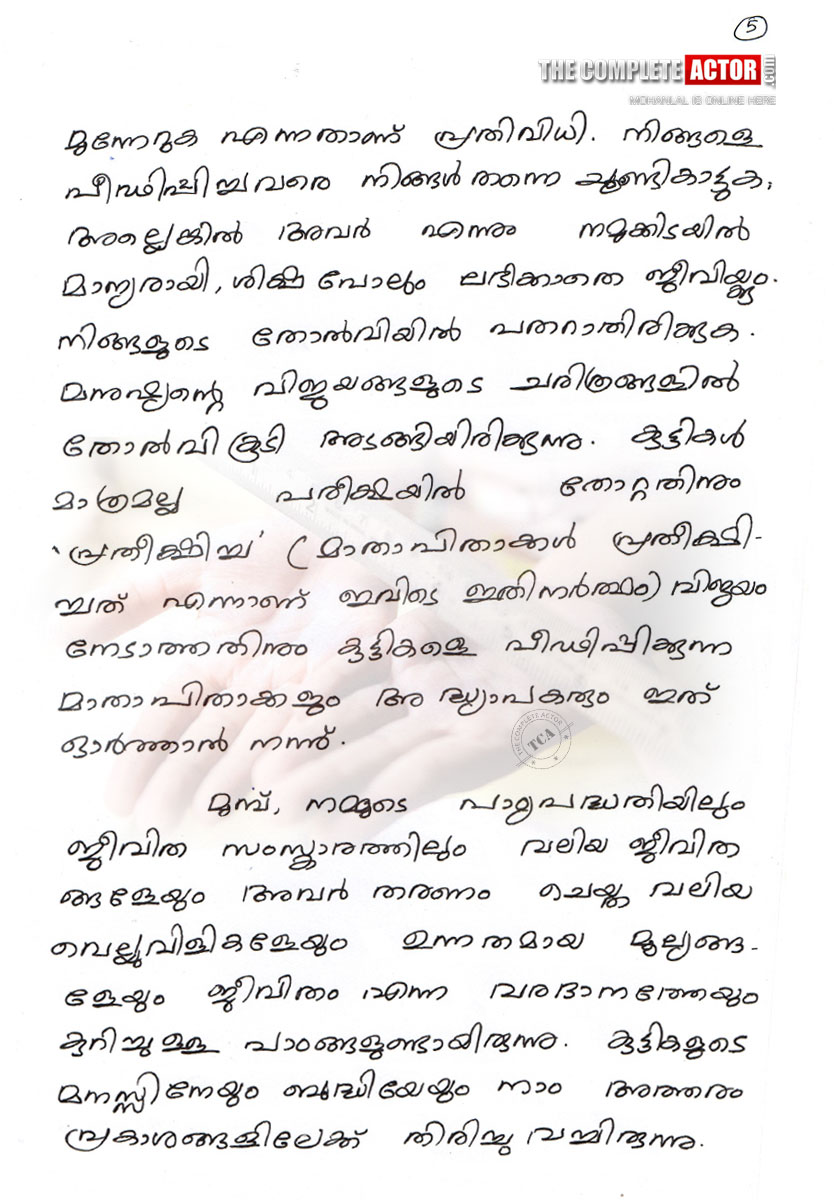 5
THE COMPLETE ACTOR .COM
MOHANLAL IS ONLINE HERE
മുന്നേറുക എന്നതാണ് പ്രതിവിധി. നിങ്ങളെ
പീഢിപ്പിച്ചവരെ നിങ്ങൾ തന്നെ ചൂണ്ടികാട്ടുക,
അല്ലെങ്കിൽ അവർ എന്നും നമുക്കിടയിൽ
മാന്യരായി, ശിക്ഷ പോലും ലഭിക്കാതെ ജീവിയ്ക്കും.
നിങ്ങളുടെ തോൽവിയിൽ പതറാതിരിക്കുക.
മനുഷ്യന്റെ വിജയങ്ങളുടെ ചരിത്രങ്ങളിൽ
തോൽവി കൂടി അടങ്ങിയിരിക്കുന്നു. കുട്ടികൾ
മാത്രമല്ല പരീക്ഷയിൽ തോറ്റതിനും
'പ്രതീക്ഷിച്ച' (മാതാപിതാക്കൾ പ്രതീക്ഷി-
ച്ചത് എന്നാണ് ഇവിടെ ഇതിനർത്ഥം) വിജയം
നേടാത്തതിനും കുട്ടികളെ പീഢിപ്പിക്കുന്ന
മാതാപിതാക്കളും അദ്ധ്യാപകരും ഇത്
ഓർത്താൽ നന്ന്.
THE COMPLETE ACTOR
TCA
മുമ്പ്, നമ്മുടെ പാഠ്യപദ്ധതിയിലും
ജീവിത സംസ്കാരത്തിലും വലിയ ജീവിത
ങ്ങളേയും അവർ തരണം ചെയ്ത വലിയ
വെല്ലുവിളികളേയും ഉന്നതമായ മൂല്യങ്ങ-
ളേയും ജീവിതം എന്ന വരദാനത്തേയും
കുറിച്ചുള്ള പാഠങ്ങളുണ്ടായിരുന്നു. കുട്ടികളുടെ
മനസ്സിനേയും ബുദ്ധിയേയും നാം അത്തരം
പ്രകാശങ്ങളിലേക്ക് തിരിച്ചു വച്ചിരുന്നു.